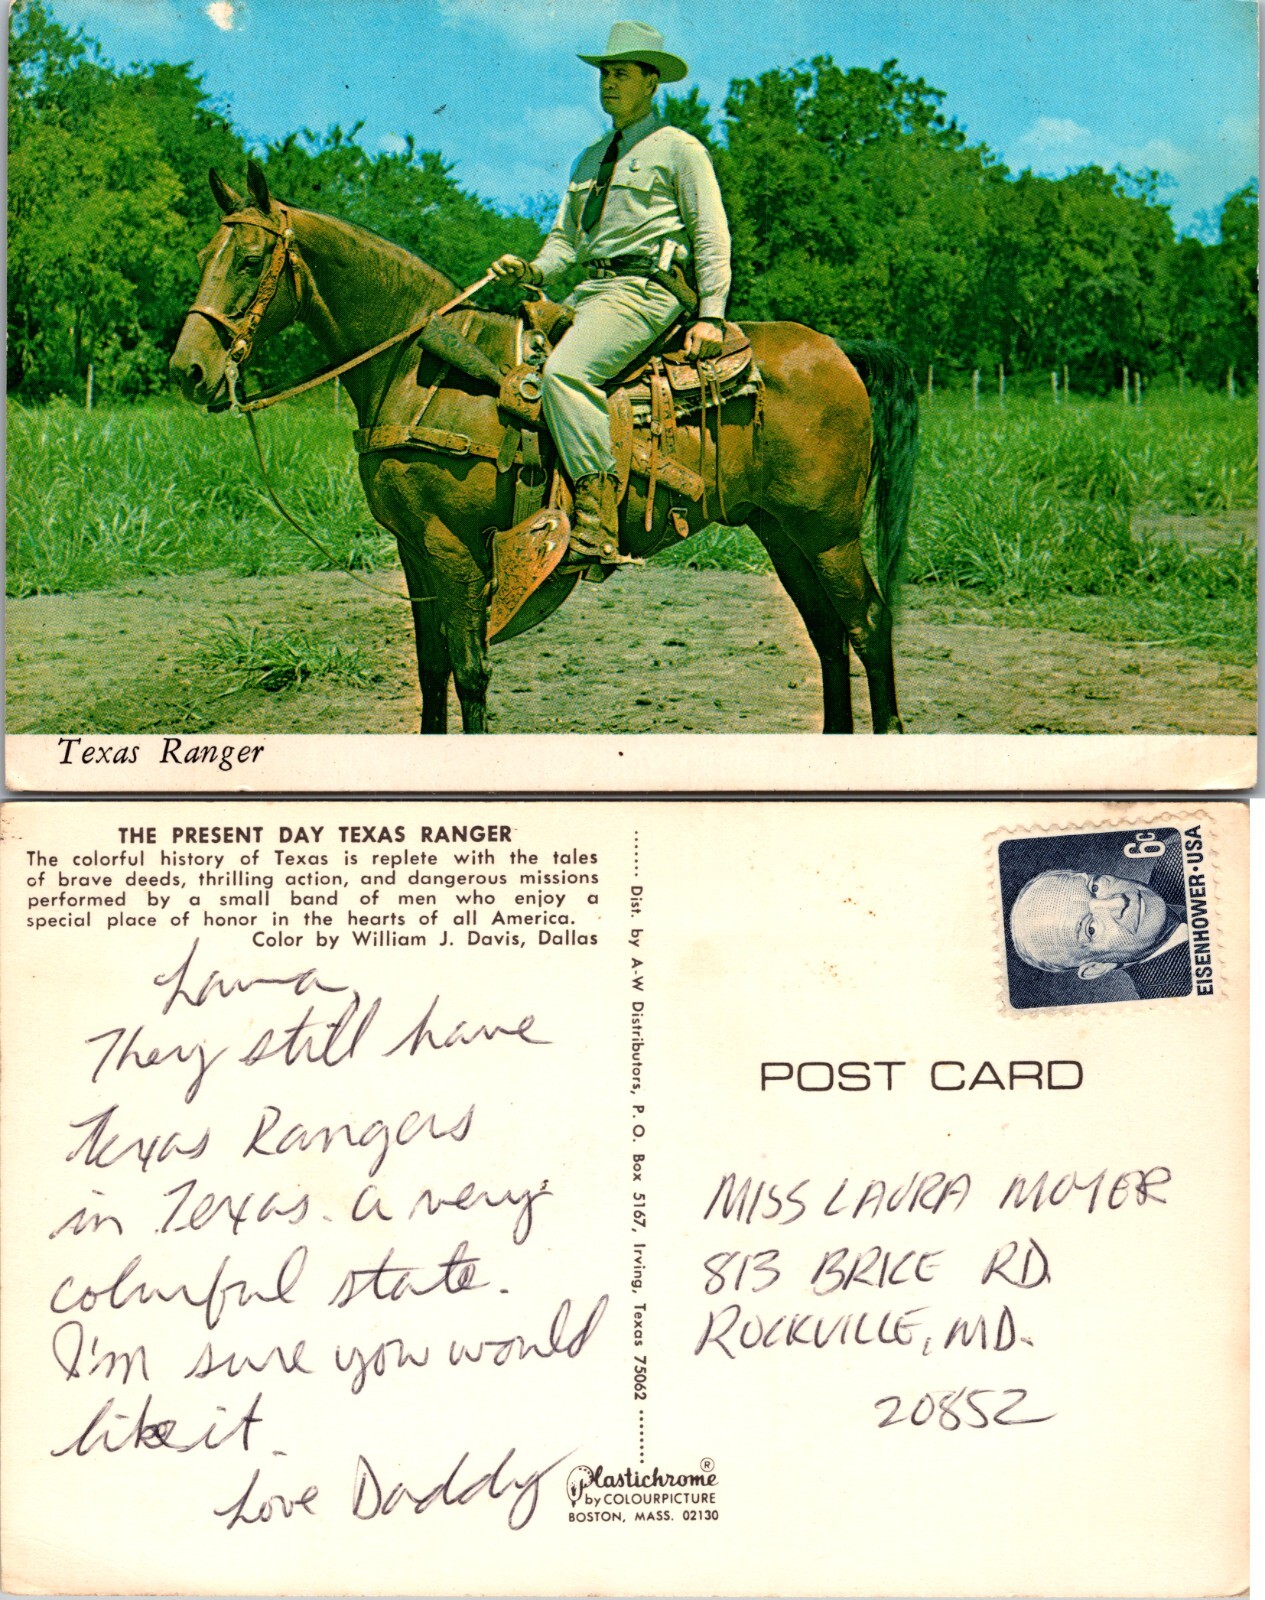 Texas Ranger
THE PRESENT DAY TEXAS RANGER
The colorful history of Texas is replete with the tales
of brave deeds, thrilling action, and dangerous missions
performed by a small band of men who enjoy a
special place of honor in the hearts of all America.
Color by William J. Davis, Dallas
Laura,
They still have
Texas Rangers
in Texas. a very
colorful state.
I'm sure you would
like it.
Love Daddy
Dist. by A-W Distributors, P. O. Box 5167, Irving, Texas 75062
Plastichrome ®
by COLOURPICTURE
BOSTON, MASS. 02130
6c
EISENHOWER·USA
POST CARD
MISS LAURA MOYER
813 BRICE RD.
ROCKVILLE, MD.
20852